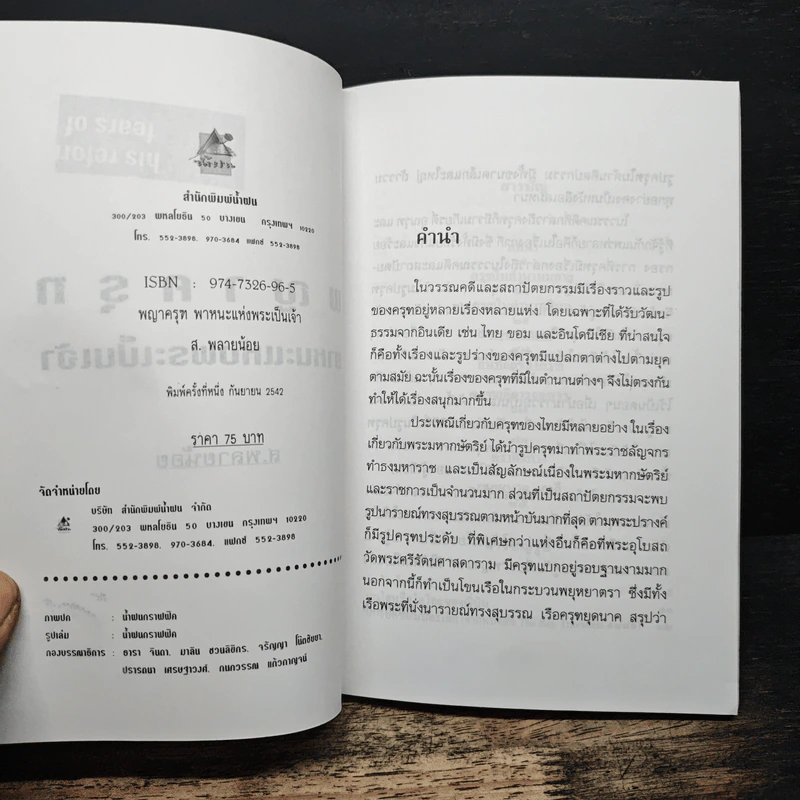 น้ำฝน
สำนักพิมพ์น้ำฝน
300/203 พหลโยธิน 50 บางเขน กรุงเทพฯ 10220
โทร. 552-3898, 970-3684 แฟกซ์ 552-3898
ISBN : 974-7326-96-5
พญาครุฑ พาหนะแห่งพระเป็นเจ้า
ส. พลายน้อย
พิมพ์ครั้งที่หนึ่ง กันยายน 2542
ราคา 75 บาท
จัดจำหน่ายโดย
บริษัท สำนักพิมพ์น้ำฝน จำกัด
300/203 พหลโยธิน 50 บางเขน กรุงเทพฯ 10220
โทร. 552-3898, 970-3684, แฟกซ์ 552-3898
ภาพปก : น้ำฝนกราฟฟิค
รูปเล่ม : น้ำฝนกราฟฟิค
กองบรรณาธิการ : ธารา จินดา, มาลิน ชวนลิขิกร, จรัญญา โน๊ตชัยยา,
ปรารถนา เศรษฐาวงศ์, กนกวรรณ แก้วกาญจน์
คำนำ
ในวรรณคดีและสถาปัตยกรรมมีเรื่องราวและรูป
ของครุฑอยู่หลายเรื่องหลายแห่ง โดยเฉพาะที่ได้รับวัฒน-
ธรรมจากอินเดีย เช่น ไทย ขอม และอินโดนีเซีย ที่น่าสนใจ
ก็คือทั้งเรื่องและรูปร่างของครุฑมีแปลกตาต่างไปตามยุค
ตามสมัย ฉะนั้นเรื่องของครุฑที่มีในตำนานต่างๆ จึงไม่ตรงกัน
ทำให้ได้เรื่องสนุกมากขึ้น
ประเพณีเกี่ยวกับครุฑของไทยมีหลายอย่าง ในเรื่อง
เกี่ยวกับพระมหากษัตริย์ ได้นำรูปครุฑมาทำพระราชลัญจกร
ทำธงมหาราช และเป็นสัญลักษณ์เนื่องในพระมหากษัตริย์
และราชการเป็นจำนวนมาก ส่วนที่เป็นสถาปัตยกรรมจะพบ
รูปนารายณ์ทรงสุบรรณตามหน้าบันมากที่สุด ตามพระปรางค์
ก็มีรูปครุฑประดับ ที่พิเศษกว่าแห่งอื่นก็คือที่พระอุโบสถ
วัดพระศรีรัตนศาสดาราม มีครุฑแบกอยู่รอบฐานงามมาก
นอกจากนี้ก็ทำเป็นโขนเรือในกระบวนพยุหยาตรา ซึ่งมีทั้ง
เรือพระที่นั่งนารายณ์ทรงสุบรรณ เรือครุฑยุดนาค สรุปว่า